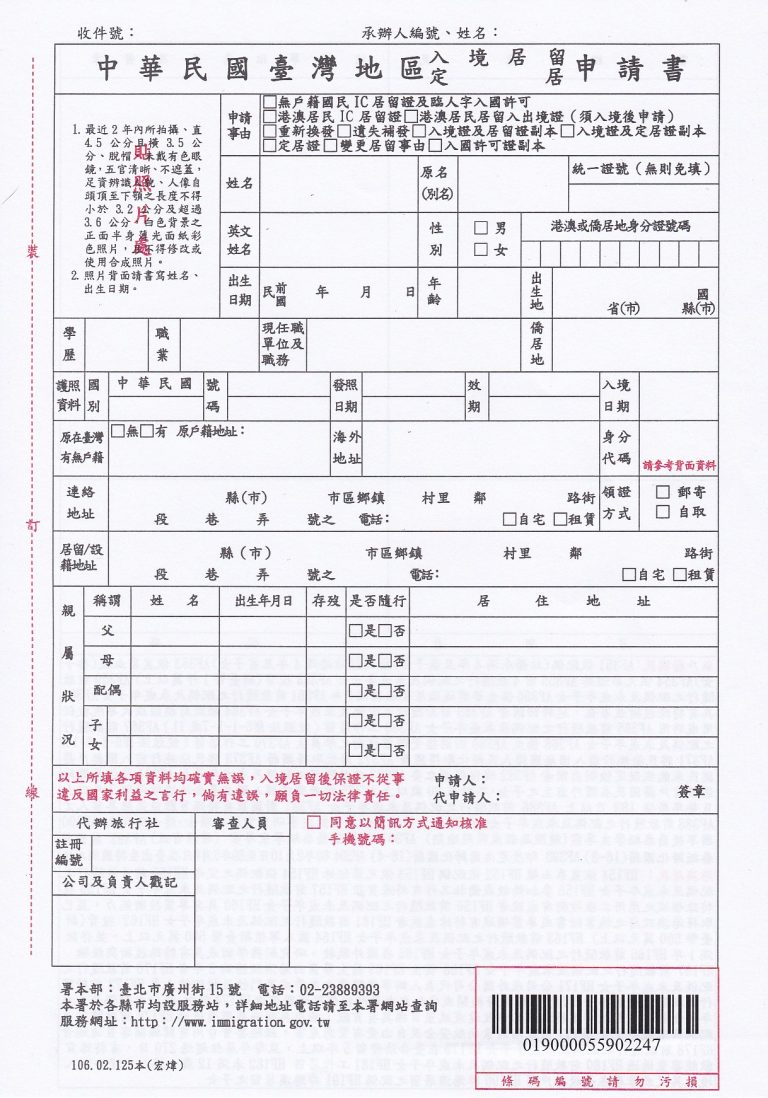 收件號： 承辦人編號、姓名：
中華民國臺灣地區入境居留申請書
定居
1. 最近2年內所拍攝、直
4.5公分且橫3.5公
分、脫帽、未戴有色眼
鏡，五官清晰、不遮蓋，
足資辨識人貌、人像自
頭頂至下顎之長度不得
小於3.2公分及超過
3.6公分，白色背景之
正面半身薄光面紙彩
色照片，且不得修改或
使用合成照片。
2. 照片背面請書寫姓名、
出生日期。
貼照片處
申請
事由
□無戶籍國民IC居留證及臨人字入國許可
□港澳居民IC居留證□港澳居民居留入出境證（須入境後申請）
□重新換發□遺失補發□入境證及居留證副本□入境證及定居證副本
□定居證□變更居留事由□入國許可證副本
姓名 原名
(別名) 統一證號（無則免填）
英文
姓名 性
別 □ 男
□ 女 港澳或僑居地身分證號碼
出生
日期 民前
國 年 月 日 年
齡 出
生
地 省(市) 國
縣(市)
學
歷 職
業 現任職
單位及
職務 僑
居
地
護照
資料 國
別 中華民國 號
碼 發照
日期 效
期 入境
日期
原在臺灣
有無戶籍 □無□有 原戶籍地址： 海外
地址 身分
代碼 請參考背面資料
連絡
地址 縣(市) 市區鄉鎮 村里 鄰 路街
段 巷 弄 號之 電話： □自宅 □租賃
領證
方式 □ 郵寄
□ 自取
居留/設
籍地址 縣（市） 市區鄉鎮 村里 鄰 路街
段 巷 弄 號之 電話： □自宅 □租賃
親屬狀況
稱謂 姓名 出生年月日 存歿 是否隨行 居住地址
父 □是□否
母 □是□否
配偶 □是□否
子
女 □是□否
□是□否
以上所填各項資料均確實無誤，入境居留後保證不從事
違反國家利益之言行，倘有違誤，願負一切法律責任。
申請人：
代申請人： 簽章
代辦旅行社 審查人員
□ 同意以簡訊方式通知核准
手機號碼：
註冊
編號
公司及負責人戳記
裝
訂
線
署本部：臺北市廣州街15號 電話：02-23889393
本署於各縣市均設服務站，詳細地址電話請至本署網站查詢
服務網址：http：//www.immigration.gov.tw
019000055902247
條碼編號請勿污損
106.02.125本(宏煒)